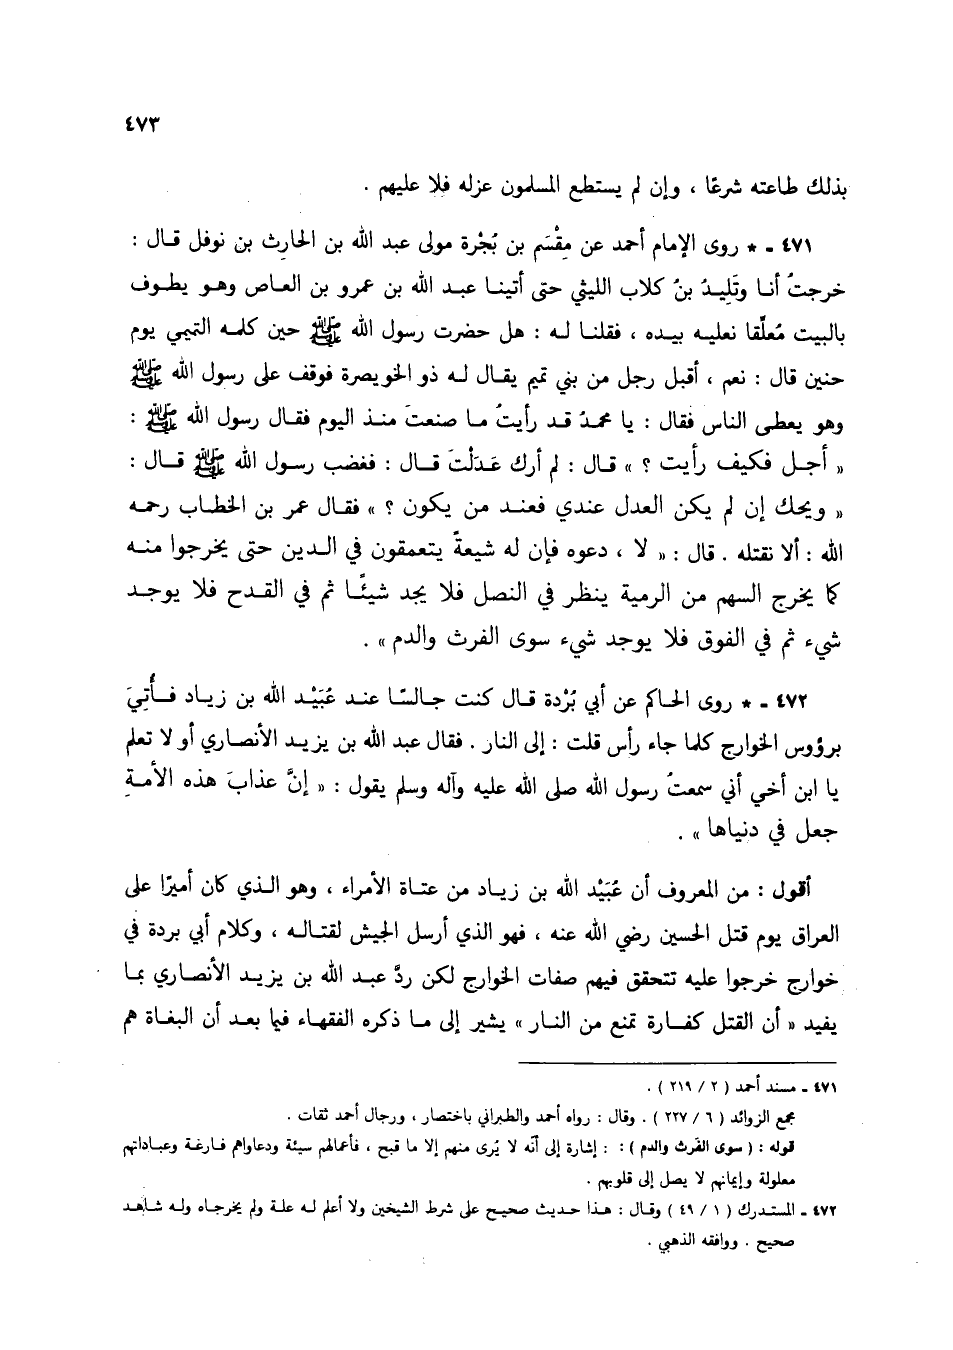 ٤٧٣
بذلك طاعته شرعًا ، وإن لم يستطع المسلمون عزله فلا عليهم .
٤٧١ - * روى الإمام أحمد عن مِقْسَم بن بُجْرة مولى عبد الله بن الحارث بن نوفل قال :
خرجتُ أنا وتَلِيدُ بنُ كلاب الليثي حتى أتينا عبد الله بن عمرو بن العاص وهو يطوف
بالبيت مُعلّقا نعليه بيده ، فقلنا له : هل حضرت رسول الله ﷺ حين كلمه التميمي يوم
حنين قال : نعم ، أقبل رجل من بني تميم يقال له ذو الخويصرة فوقف على رسول الله ﷺ
وهو يعطى الناس فقال : يا محمدُ قد رأيتُ ما صنعتَ منذ اليوم فقال رسول الله ﷺ :
« أجل فكيف رأيت ؟ » قال : لم أرك عَدَلْتَ قال : فغضب رسول الله ﷺ قال :
« ويحك إن لم يكن العدل عندي فعند من يكون ؟ » فقال عمر بن الخطاب رحمه
الله : ألا نقتله . قال : « لا ، دعوه فإن له شيعةً يتعمقون في الدين حتى يخرجوا منه
كما يخرج السهم من الرمية ينظر في النصل فلا يجد شيئًا ثم في القدح فلا يوجد
شيء ثم في الفوق فلا يوجد شيء سوى الفرث والدم » .
٤٧٢ - * روى الحاكم عن أبي بُرْدة قال كنت جالسًا عند عُبَيْد الله بن زياد فأُتِيَ
برؤوس الخوارج كلما جاء رأس قلت : إلى النار . فقال عبد الله بن يزيد الأنصاري أو لا تعلم
يا ابن أخي أني سمعتُ رسول الله صلى الله عليه وآله وسلم يقول : « إنَّ عذابَ هذه الأمةِ
جعل في دنياها » .
أقول : من المعروف أن عُبَيْد الله بن زياد من عتاة الأمراء ، وهو الذي كان أميرًا على
العراق يوم قتل الحسين رضي الله عنه ، فهو الذي أرسل الجيش لقتاله ، وكلام أبي بردة في
خوارج خرجوا عليه تتحقق فيهم صفات الخوارج لكن ردَّ عبد الله بن يزيد الأنصاري بما
يفيد « أن القتل كفارة تمنع من النار » يشير إلى ما ذكره الفقهاء فيما بعد أن البغاة هم
٤٧١ - مسند أحمد ( ٢ / ٢١٩ ) .
مجمع الزوائد ( ٦ / ٢٢٧ ) . وقال : رواه أحمد والطبراني باختصار ، ورجال أحمد ثقات .
قوله : ( سوى الفَرث والدم ) : : إشارة إلى أنّه لا يُرى منهم إلا ما قبح ، فأعمالهم سيئة ودعاواهم فارغة وعباداتهم
معلولة وإيمانهم لا يصل إلى قلوبهم .
٤٧٢ - المستدرك ( ١ / ٤٩ ) وقال : هذا حديث صحيح على شرط الشيخين ولا أعلم له علة ولم يخرجاه وله شاهد
صحيح . ووافقه الذهبي .